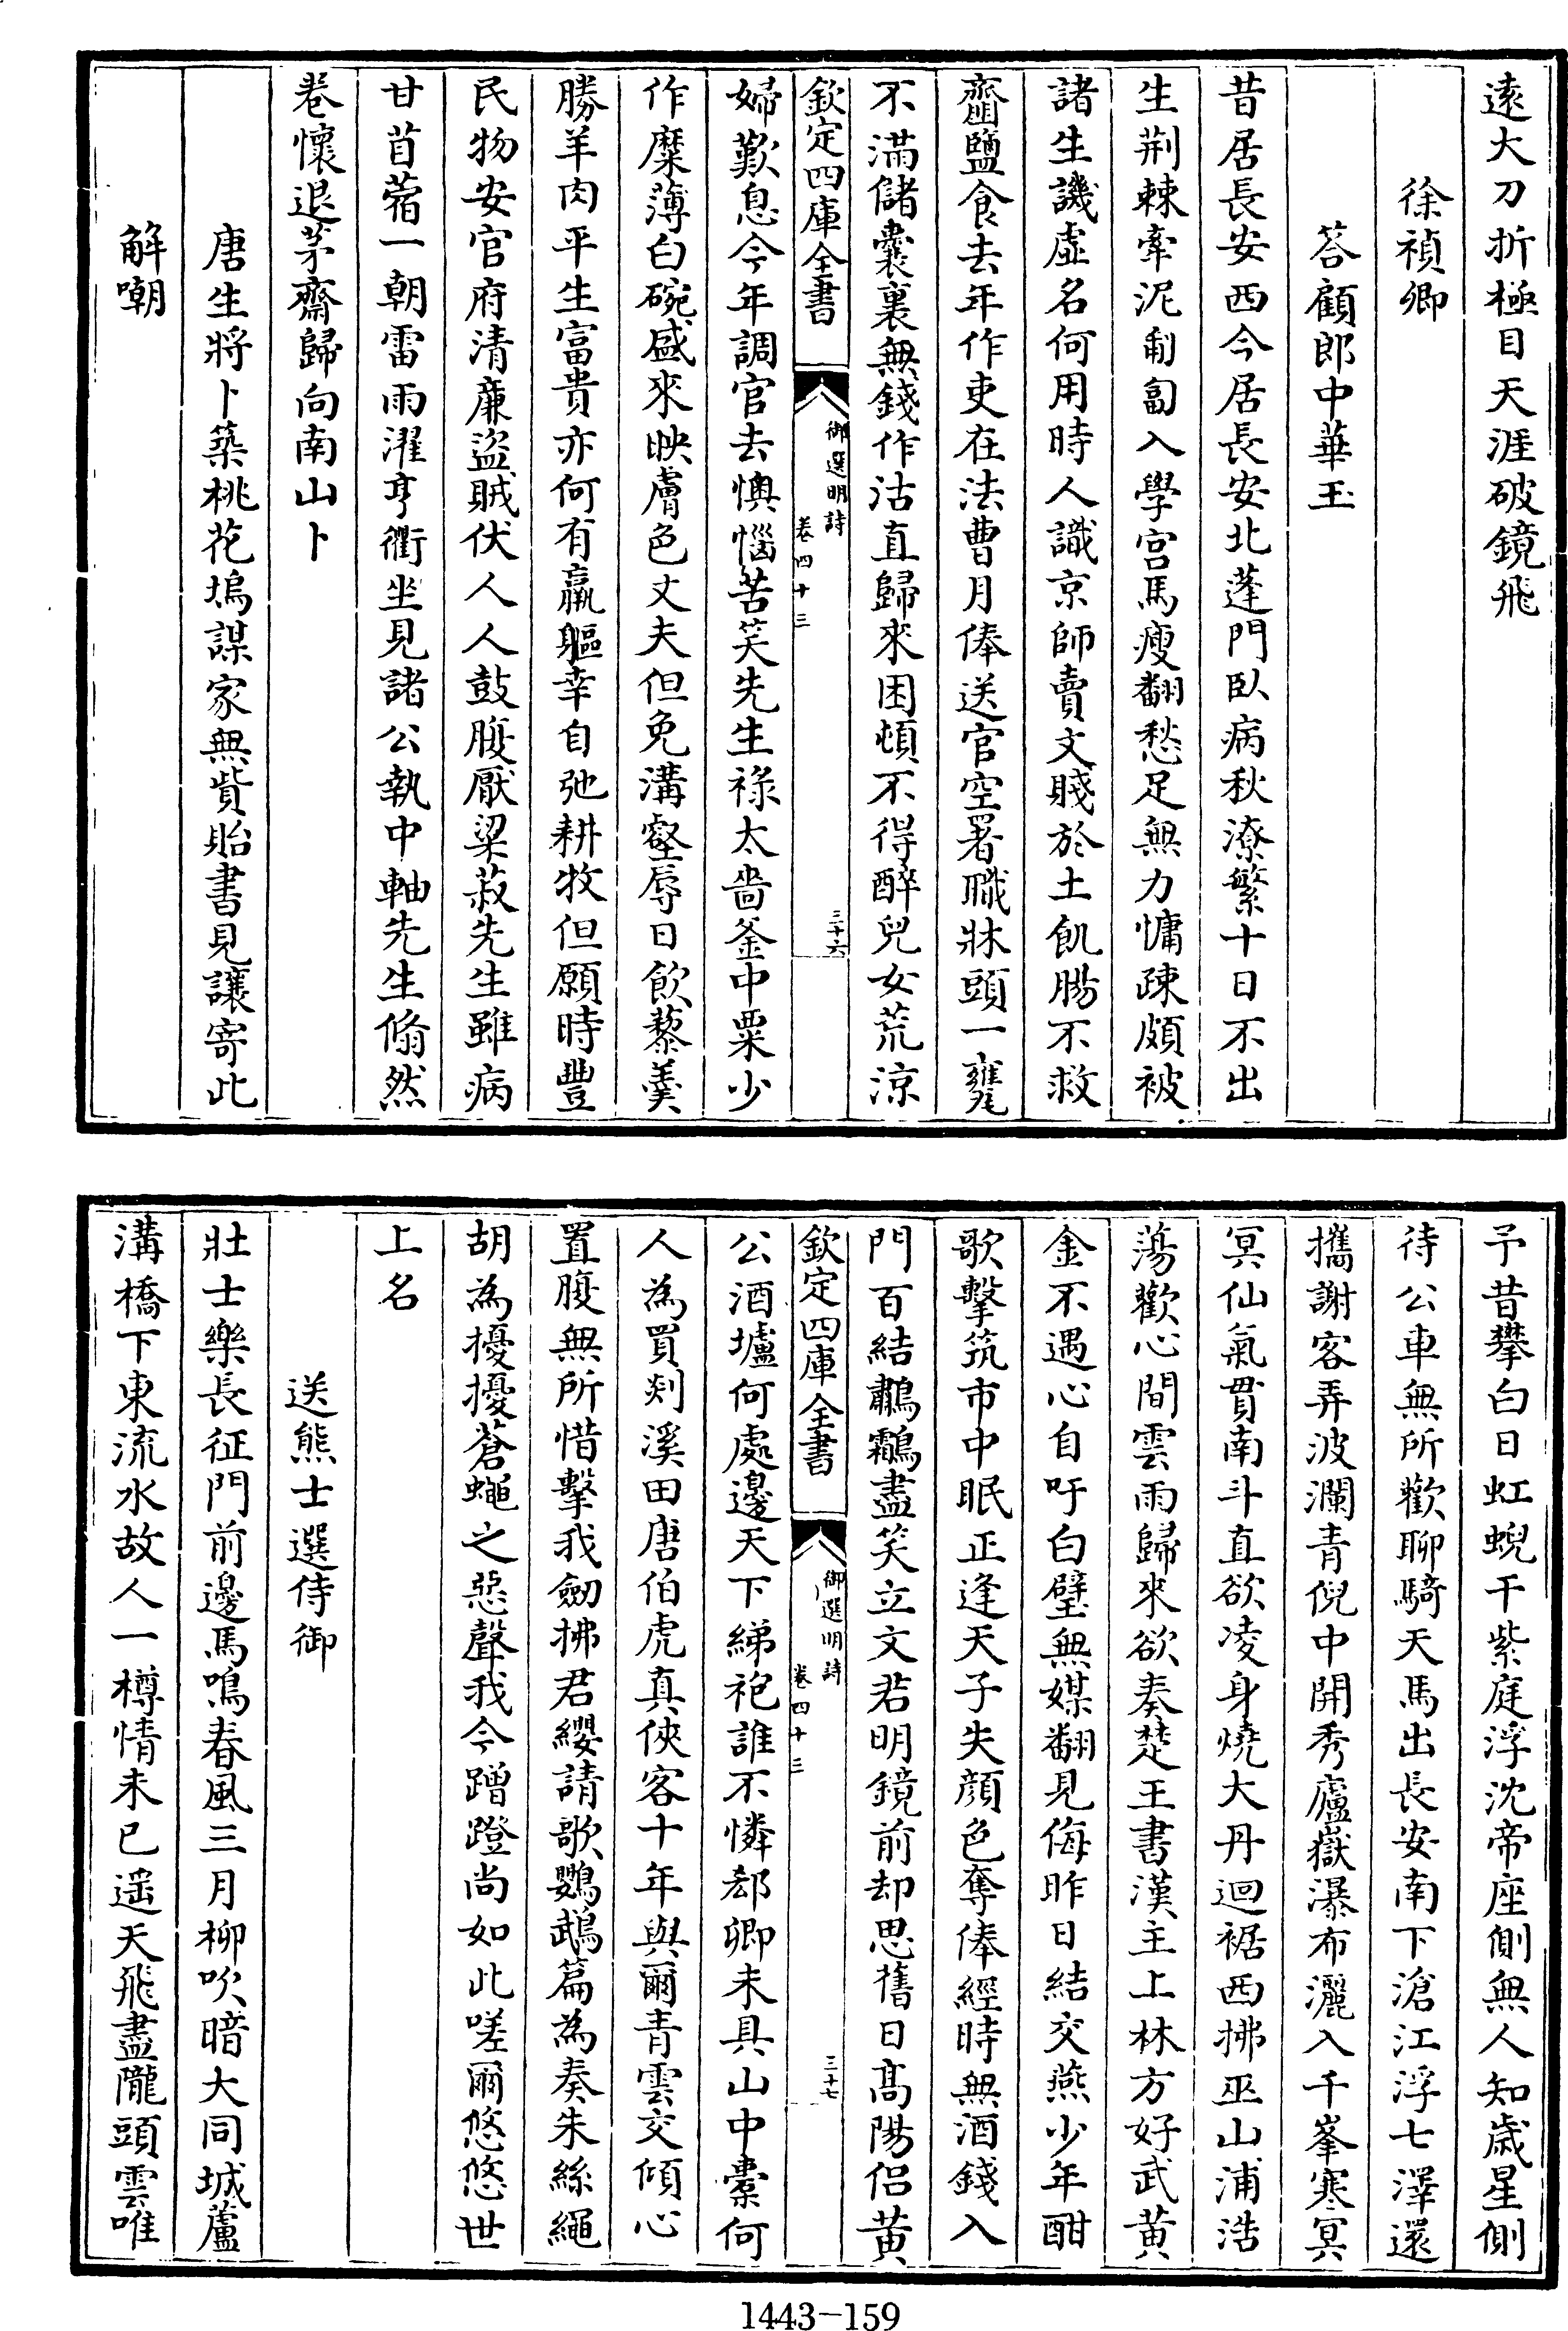 遠大刀折極目天涯破鏡飛
徐禎卿
荅顧郎中華玉
昔居長安西今居長安北蓬門臥病秋潦繁十日不出
生荆棘牽泥匍匐入學宫馬瘦翻愁足無力慵疎頗被
諸生譏虛名何用時人識京師賣文賤於土飢腸不救
齏鹽食去年作吏在法曹月俸送官空署職牀頭一甕
不滿儲囊裏無錢作沽直歸來困頓不得醉兒女荒涼
欽定四庫全書
御選明詩
卷四十三
三十六
婦歎息今年調官去懊惱苦笑先生祿太嗇釜中粟少
作糜薄白碗盛來映膚色丈夫但免溝壑辱日飲藜羮
勝羊肉平生富貴亦何有羸軀幸自弛耕牧但願時豐
民物安官府清廉盜賊伏人人鼓腹厭粱菽先生雖病
甘苜蓿一朝雷雨濯亨衢坐見諸公執中軸先生翛然
卷懷退茅齋歸向南山卜
唐生將卜築桃花塢謀家無貲貽書見讓寄此
解嘲
予昔攀白日虹蜺干紫庭浮沈帝座側無人知歲星側
待公車無所歡聊騎天馬出長安南下滄江浮七澤還
攜謝客弄波瀾青倪中開秀廬嶽瀑布灑入千峯寒冥
冥仙氣貫南斗直欲凌身燒大丹迴裾西拂巫山浦浩
蕩歡心間雲雨歸來欲奏楚王書漢主上林方好武黄
金不遇心自吁白璧無媒翻見侮昨日結交燕少年酣
歌擊筑市中眠正逢天子失顔色奪俸經時無酒錢入
門百結鷫鸘盡笑立文君明鏡前却思舊日髙陽侣黄
欽定四庫全書
御選明詩
卷四十三
三十七
公酒壚何處邊天下綈袍誰不憐郄卿未具山中橐何
人為買剡溪田唐伯虎真俠客十年與爾青雲交傾心
置腹無所惜擊我劒拂君纓請歌鸚鵡篇為奏朱絲繩
胡為擾擾蒼蠅之惡聲我今蹭蹬尚如此嗟爾悠悠世
上名
送熊士選侍御
壯士樂長征門前邊馬鳴春風三月柳吹暗大同城蘆
溝橋下東流水故人一樽情未已遥天飛盡隴頭雲唯
1443-159